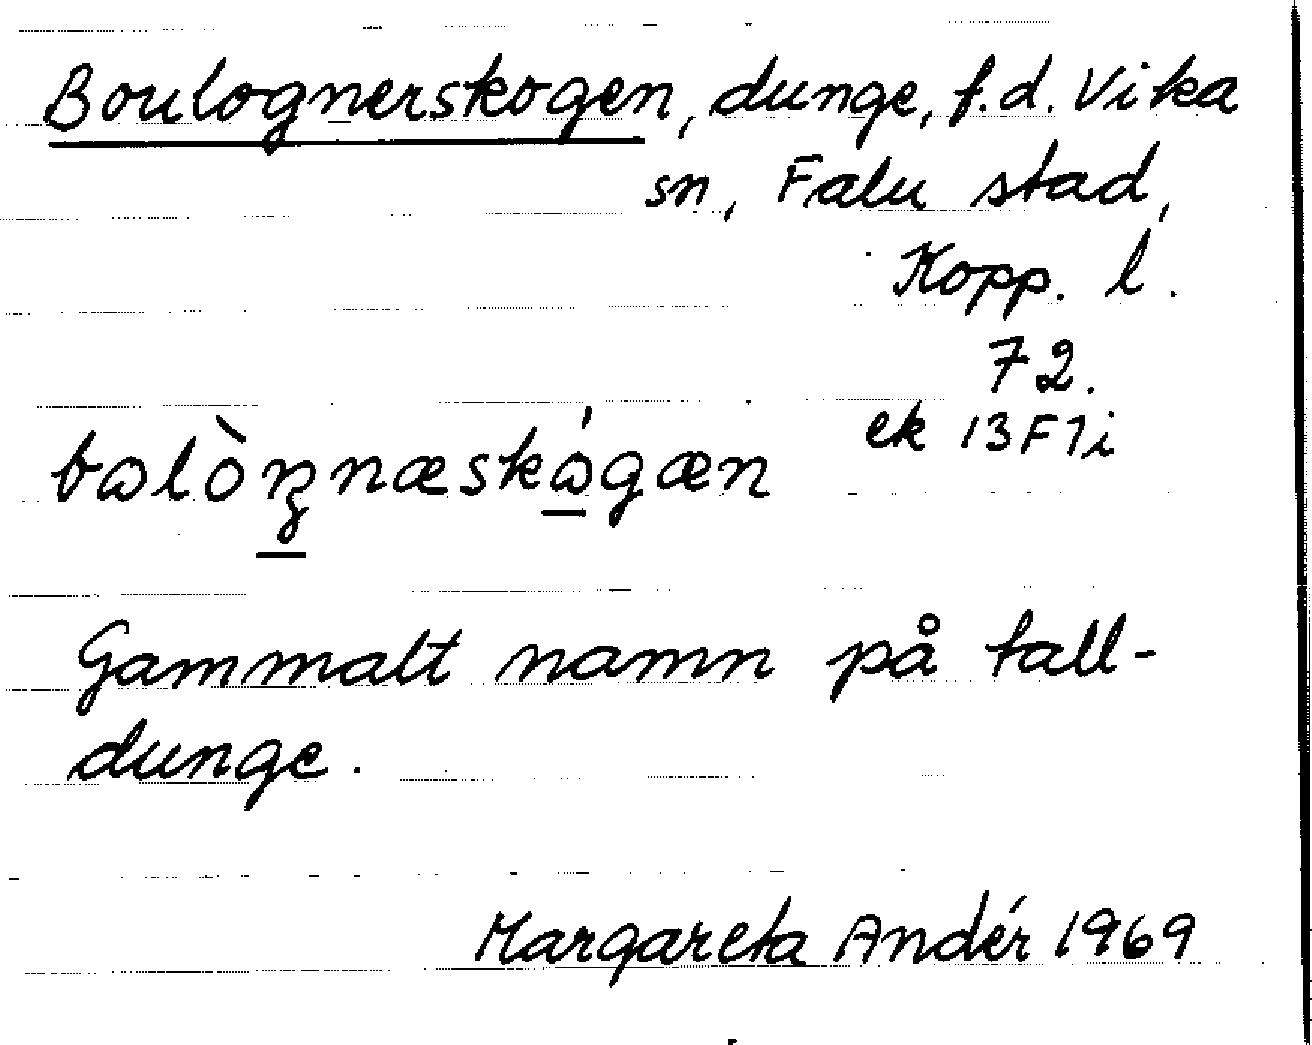 Boulognerskogen, dunge, f.d. Vika
sn, Falu stad,
Kopp. l.
72.
ek 13F7i
Gammalt namn på tall-
dunge.
Margareta Andér 1969